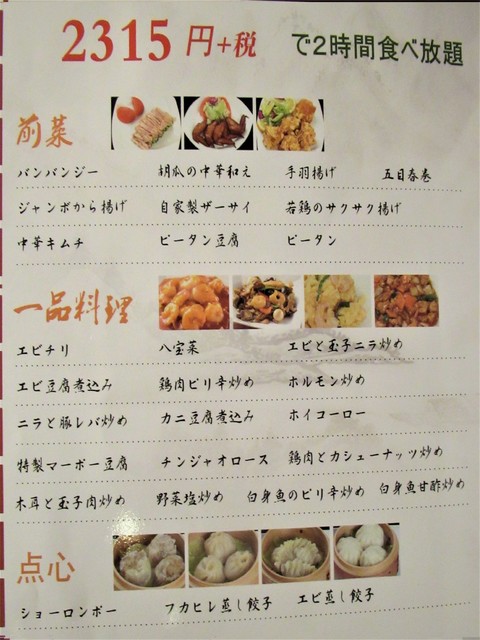 2315円+税 で2時間食べ放題
前菜
バンバンジー 胡瓜の中華和え 手羽揚げ 五目春巻
ジャンボから揚げ 自家製ザーサイ 若鶏のサクサク揚げ
中華キムチ ピータン豆腐 ピータン
一品料理
エビチリ 八宝菜 エビと玉子ニラ炒め
エビ豆腐煮込み 鶏肉ピリ辛炒め ホルモン炒め
ニラと豚レバ炒め カニ豆腐煮込み ホイコーロー
特製マーボー豆腐 チンジャオロース 鶏肉とカシューナッツ炒め
木耳と玉子肉炒め 野菜塩炒め 白身魚のピリ辛炒め 白身魚甘酢炒め
点心
ショーロンポー フカヒレ蒸し餃子 エビ蒸し餃子